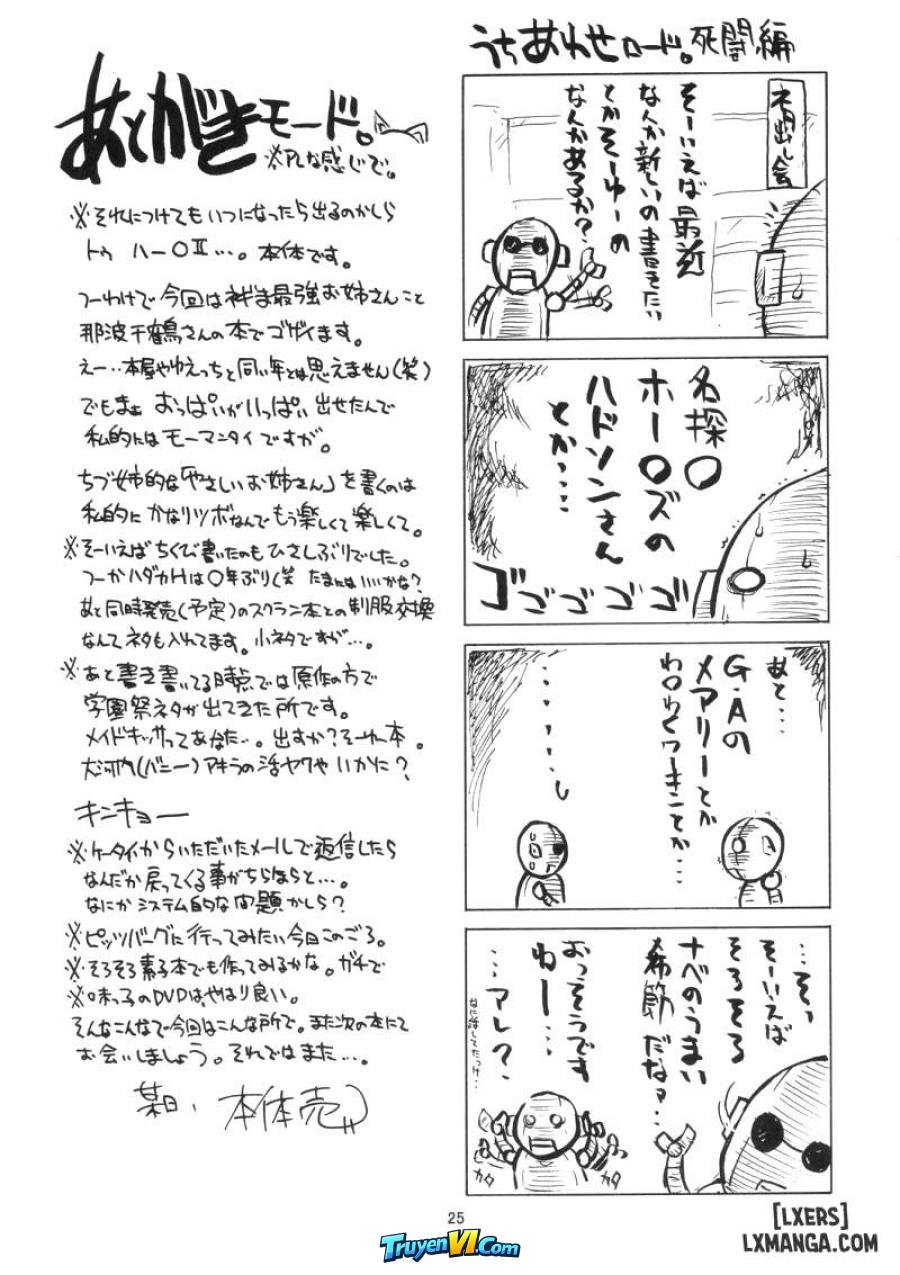 うちあわせロード。死闘編
ネタ出し会
そーいえば最近
なんか新しいの書きたい
とかそーゆーの
なんかあるか?
名探○
ホー○ズの
ハドソンさん
とか…
ゴゴゴゴゴ
あと…
G・Aの
メアリーとか
わ○わくワーキンとか…
…そっ
そーいえば
そろそろ
ナベのうまい
季節だなァ…
おっそうです
ねー…
…アレ?
なに話してたっけ…
カタ
カタ
あとがきモード。
※アレな感じで。
※それにつけてもいつになったら出るのかしら
トゥ ハー○Ⅱ…。本体です。
つーわけで今回はネギま最強お姉さんこと
那波千鶴さんの本でゴザイます。
えー‥本屋やゆえっちと同い年とは思えません(笑)
でもまぁ おっぱいがいっぱい出せたんで
私的にはモーマンタイですが。
ちづ姉的な「やさしいお姉さん」を書くのは
私的にかなりツボなんでもう楽しくて楽しくて。
※そーいえばちくび書いたのもひさしぶりでした。
つーかハダカHは○年ぶり(笑 たまにはいいかな?
あと同時発売(予定)のスクラン本との制服交換
なんてネタも入れてます。小ネタですが…。
※あと書き書いてる時点では原作の方で
学園祭ネタが出てきた所です。
メイドキッサってあなた‥。出すか?そーゆー本。
大河内(バニー)アキラの活ヤクやいかに?
キンキョー
※ケータイからいただいたメールで返信したら
なんだか戻ってくる事がちらほらと…。
なにかシステム的な問題かしら?
※ピッツバーグに行ってみたい今日このごろ。
※そろそろ素子本でも作ってみるかな。ガチで
※味っ子のDVDはやはり良い。
そんなこんなで今回はこんな所で。また次の本にて
お会いしましょう。それではまた…。
某日、本体売
25
TruyenVI.Com
[LXERS]
LXMANGA.COM